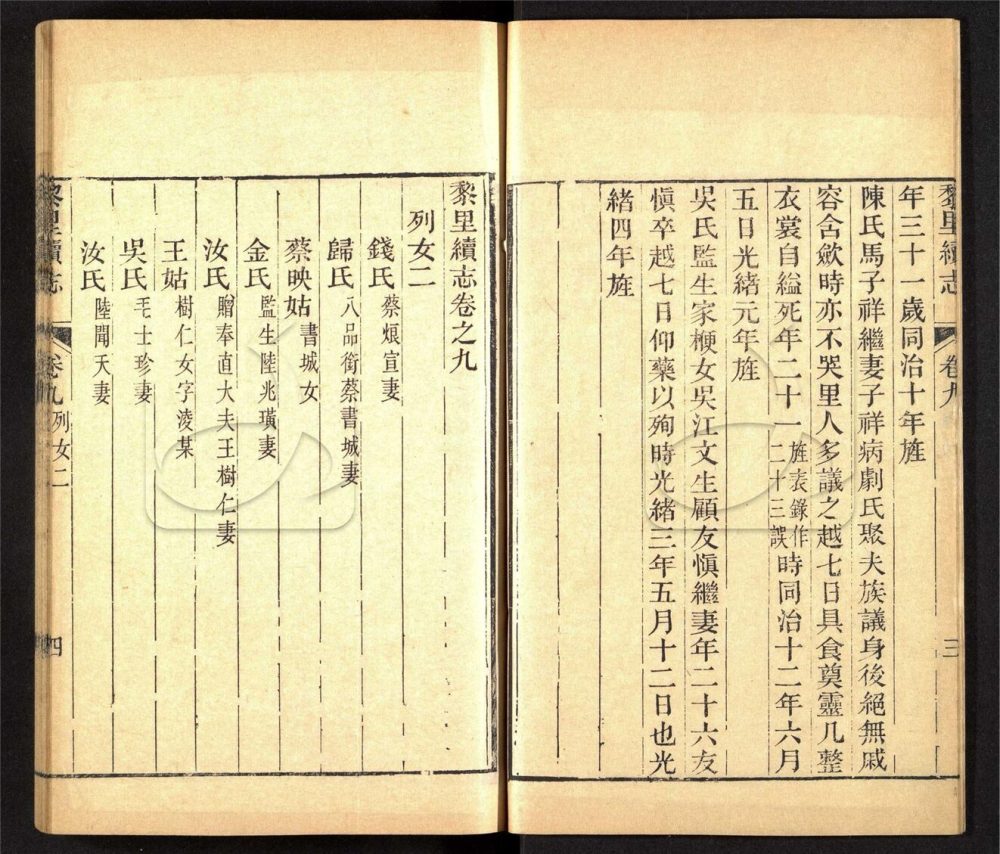 黎里續志
卷九
三
年三十一歲同治十年旌
陳氏馬子祥繼妻子祥病劇氏聚夫族議身後絕無戚
容含歛時亦不哭里人多議之越七日具食奠靈几整
衣裳自縊死年二十一旌表錄作二十三誤時同治十二年六月
五日光緒元年旌
吳氏監生家梗女吳江文生顧友愼繼妻年二十六友
愼卒越七日仰藥以殉時光緒三年五月十二日也光
緒四年旌
黎里續志卷之九
列女二
錢氏蔡烺宣妻
歸氏八品銜蔡書城妻
蔡映姑書城女
金氏監生陸兆璜妻
汝氏贈奉直大夫王樹仁妻
王姑樹仁女字淩某
吳氏毛士珍妻
汝氏陸聞天妻
黎里續志
卷九列女二
四